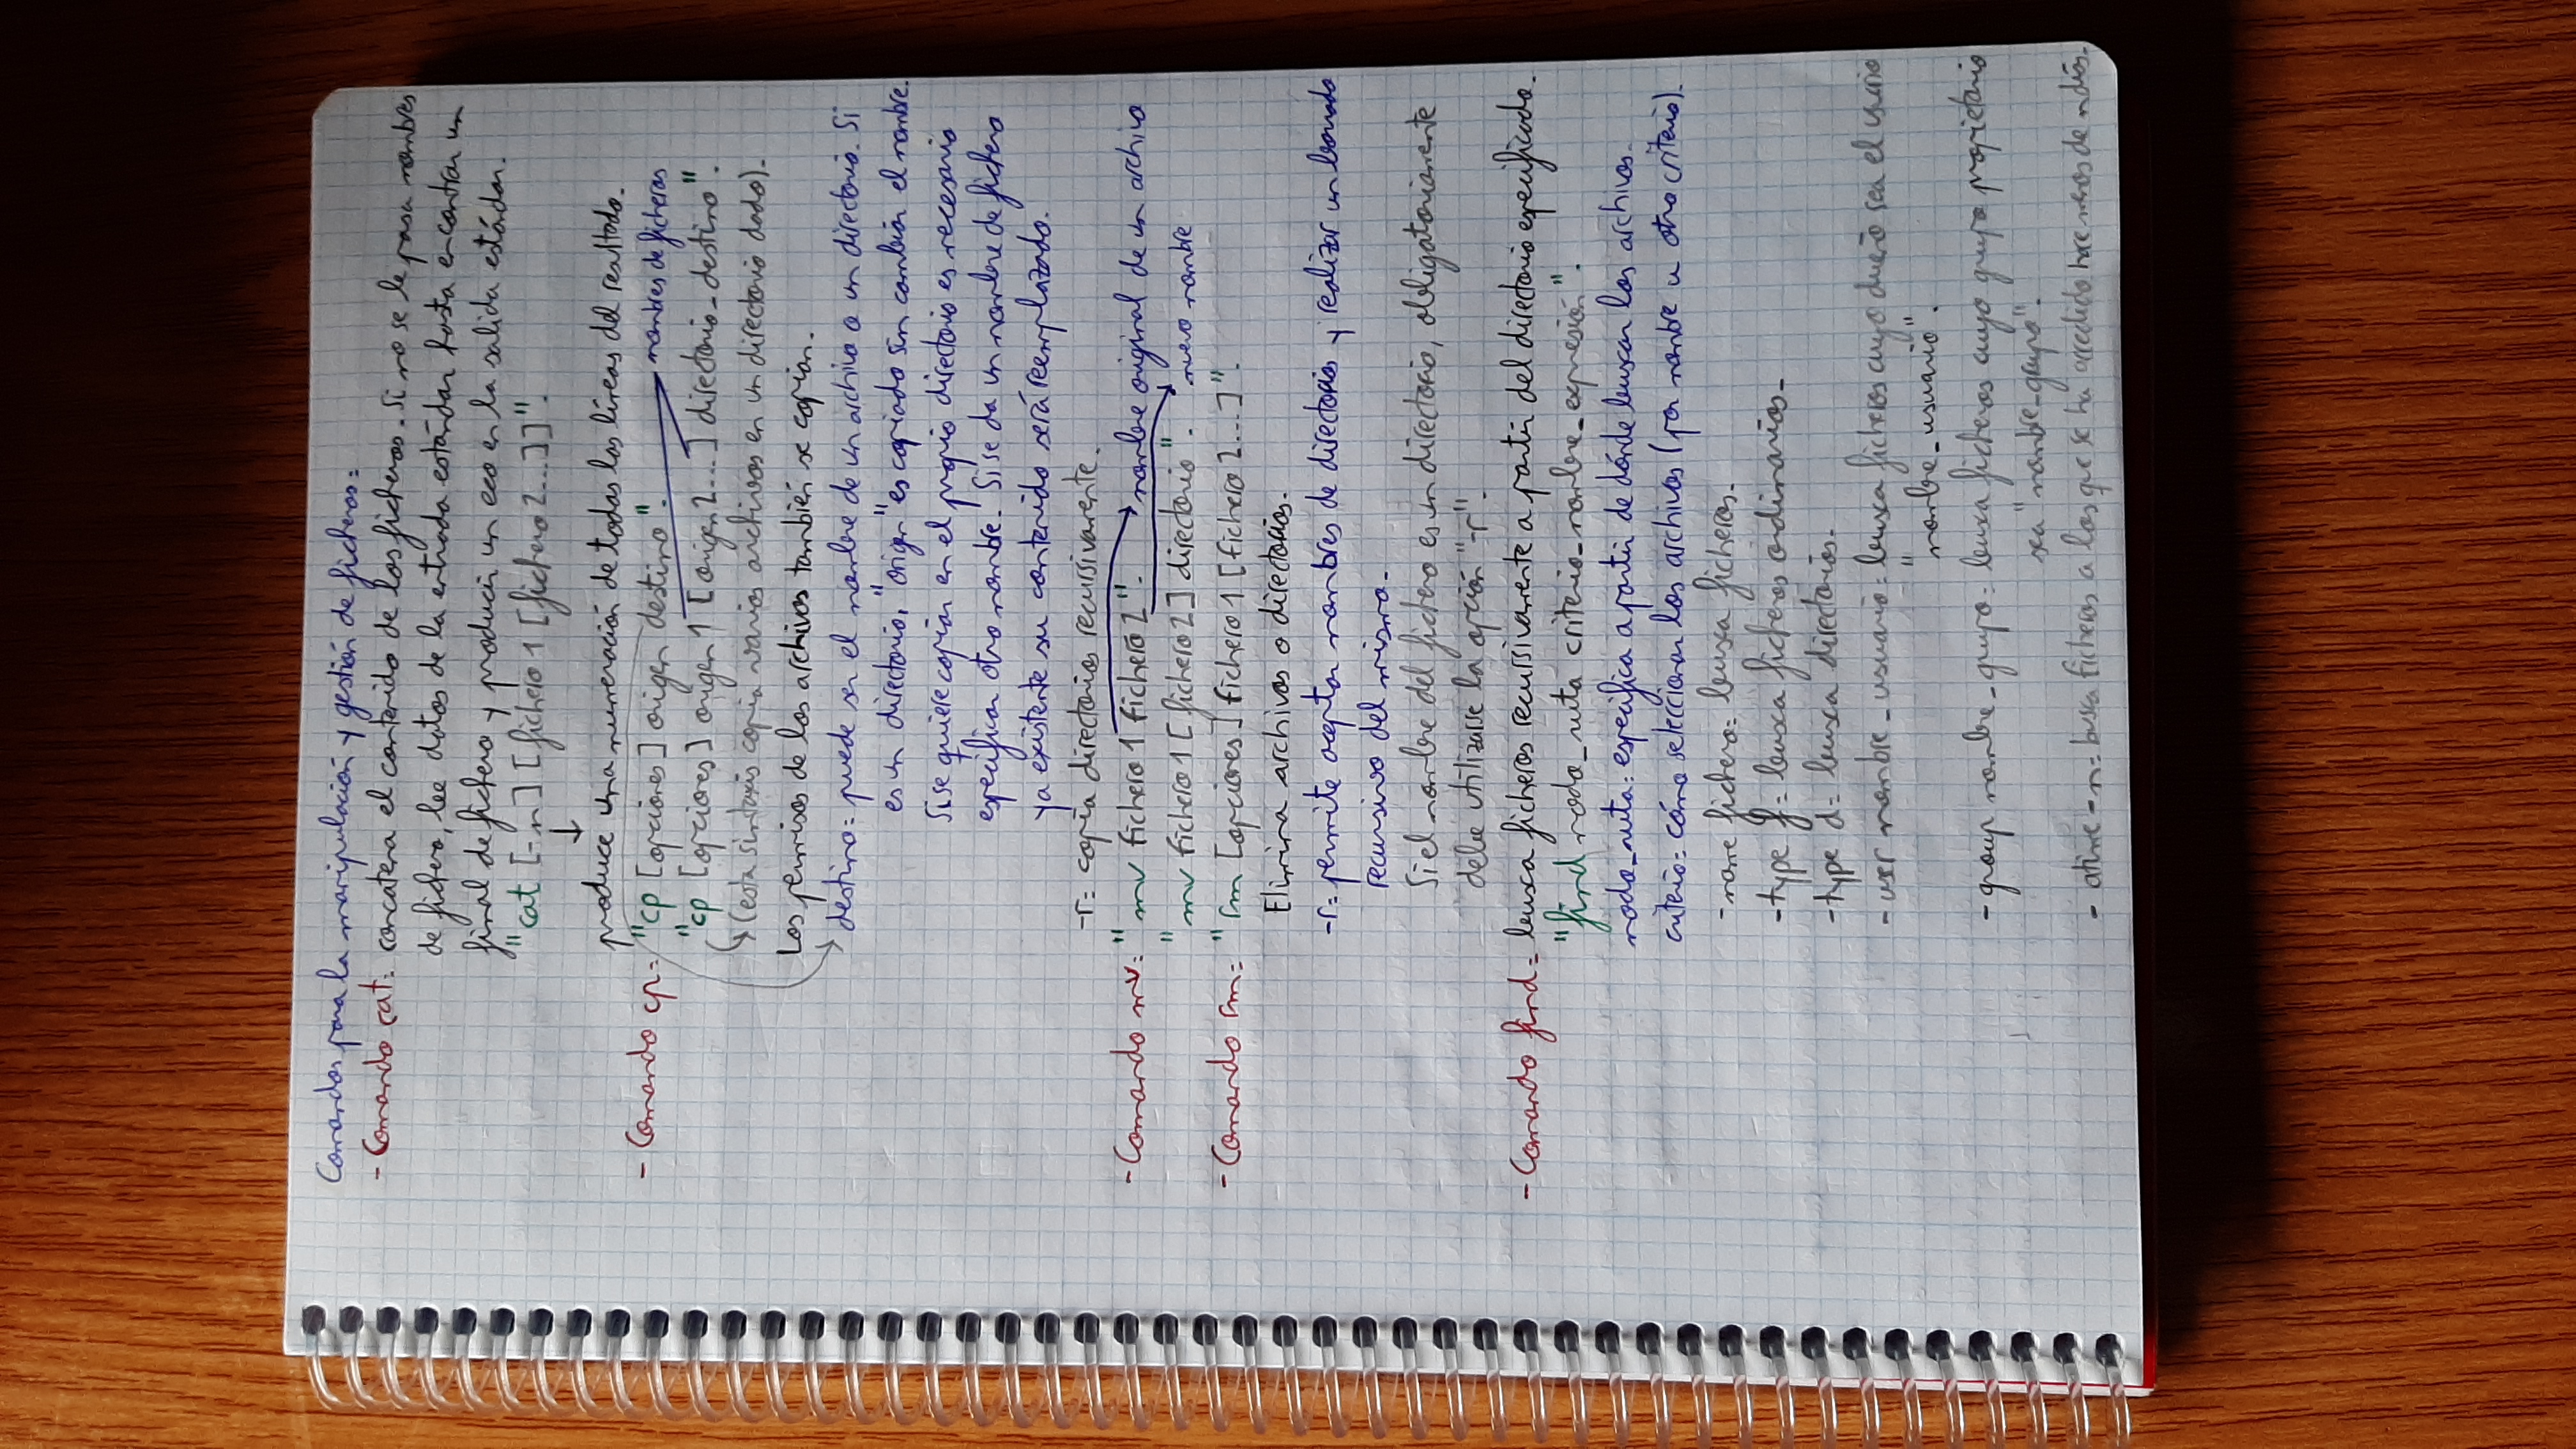 Comandos para la manipulación y gestión de ficheros:
- Comando cat: concatena el contenido de los ficheros. Si no se le pasa nombres
de fichero, lee datos de la entrada estándar hasta encontrar un
final de fichero y producir un eco en la salida estándar.
"cat [-n] [fichero1 [fichero2...]]".
↓
produce una numeración de todas las líneas del resultado.
- Comando cp: "cp [opciones] origen destino". nombres de ficheros
"cp [opciones] origen1 [origen2...] directorio_destino".
(esta sintaxis copia varios archivos en un directorio dado).
Los permisos de los archivos también se copian.
destino: puede ser el nombre de un archivo o un directorio. Si
es un directorio, "origen" es copiado sin cambiar el nombre.
Si se quiere copiar en el propio directorio es necesario
especificar otro nombre. Si se da un nombre de fichero
ya existente su contenido será reemplazado.
-r: copia directorios recursivamente.
- Comando mv: "mv fichero1 fichero2". nombre original de un archivo
"mv fichero1 [fichero2] directorio". nuevo nombre
- Comando rm: "rm [opciones] fichero1 [fichero2...]".
Elimina archivos o directorios.
-r: permite aceptar nombres de directorios y realizar un borrado
recursivo del mismo.
Si el nombre del fichero es un directorio, obligatoriamente
debe utilizarse la opción "-r".
- Comando find: busca ficheros recursivamente a partir del directorio especificado.
"find nodo_ruta criterio_nombre_expresión".
nodo_ruta: especifica a partir de dónde buscar los archivos.
criterio: cómo seleccionar los archivos (por nombre u otro criterio).
-name fichero: busca ficheros.
-type f: busca ficheros ordinarios.
-type d: busca directorios.
-user nombre_usuario: busca ficheros cuyo dueño sea el usuario
"nombre_usuario".
-group nombre_grupo: busca ficheros cuyo grupo propietario
sea "nombre_grupo".
- atime -n: busca ficheros a los que se ha accedido hace menos de n días.